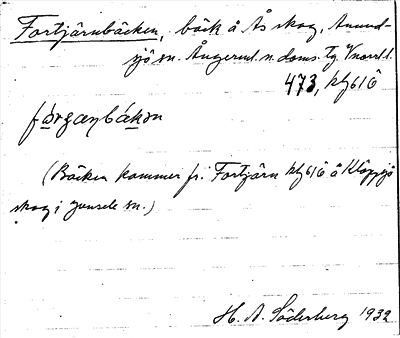 Fortjärnbäcken, bäck å Ås skog, Anund-
sjö sn. Ångerml. n. doms. tg. V norrl. l.
473, klg 61ö
fɷrgaṇbäkən
(Bäcken kommer fr. Fortjärn klg 61ö å Kläppsjö
skog i Junsele sn.)
H. A. Söderberg 1932